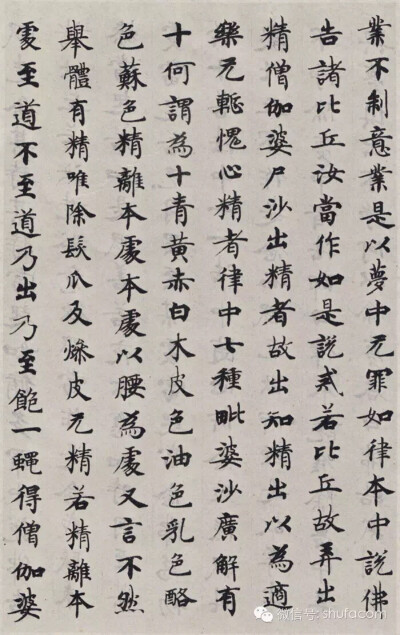 業不制意業是以夢中无罪如律本中說佛
告諸比丘汝當作如是說戒若比丘故弄出
精僧伽婆尸沙出精者故出知精出以為適
樂无慚愧心精者律中七種毗婆沙廣解有
十何謂為十青黃赤白木皮色油色乳色酪
色蘇色精離本處本處以腰為處又言不然
舉體有精唯除髮爪及燥皮无精若精離本
處至道不至道乃出乃至飽一蠅得僧伽婆
微信号: shufacom